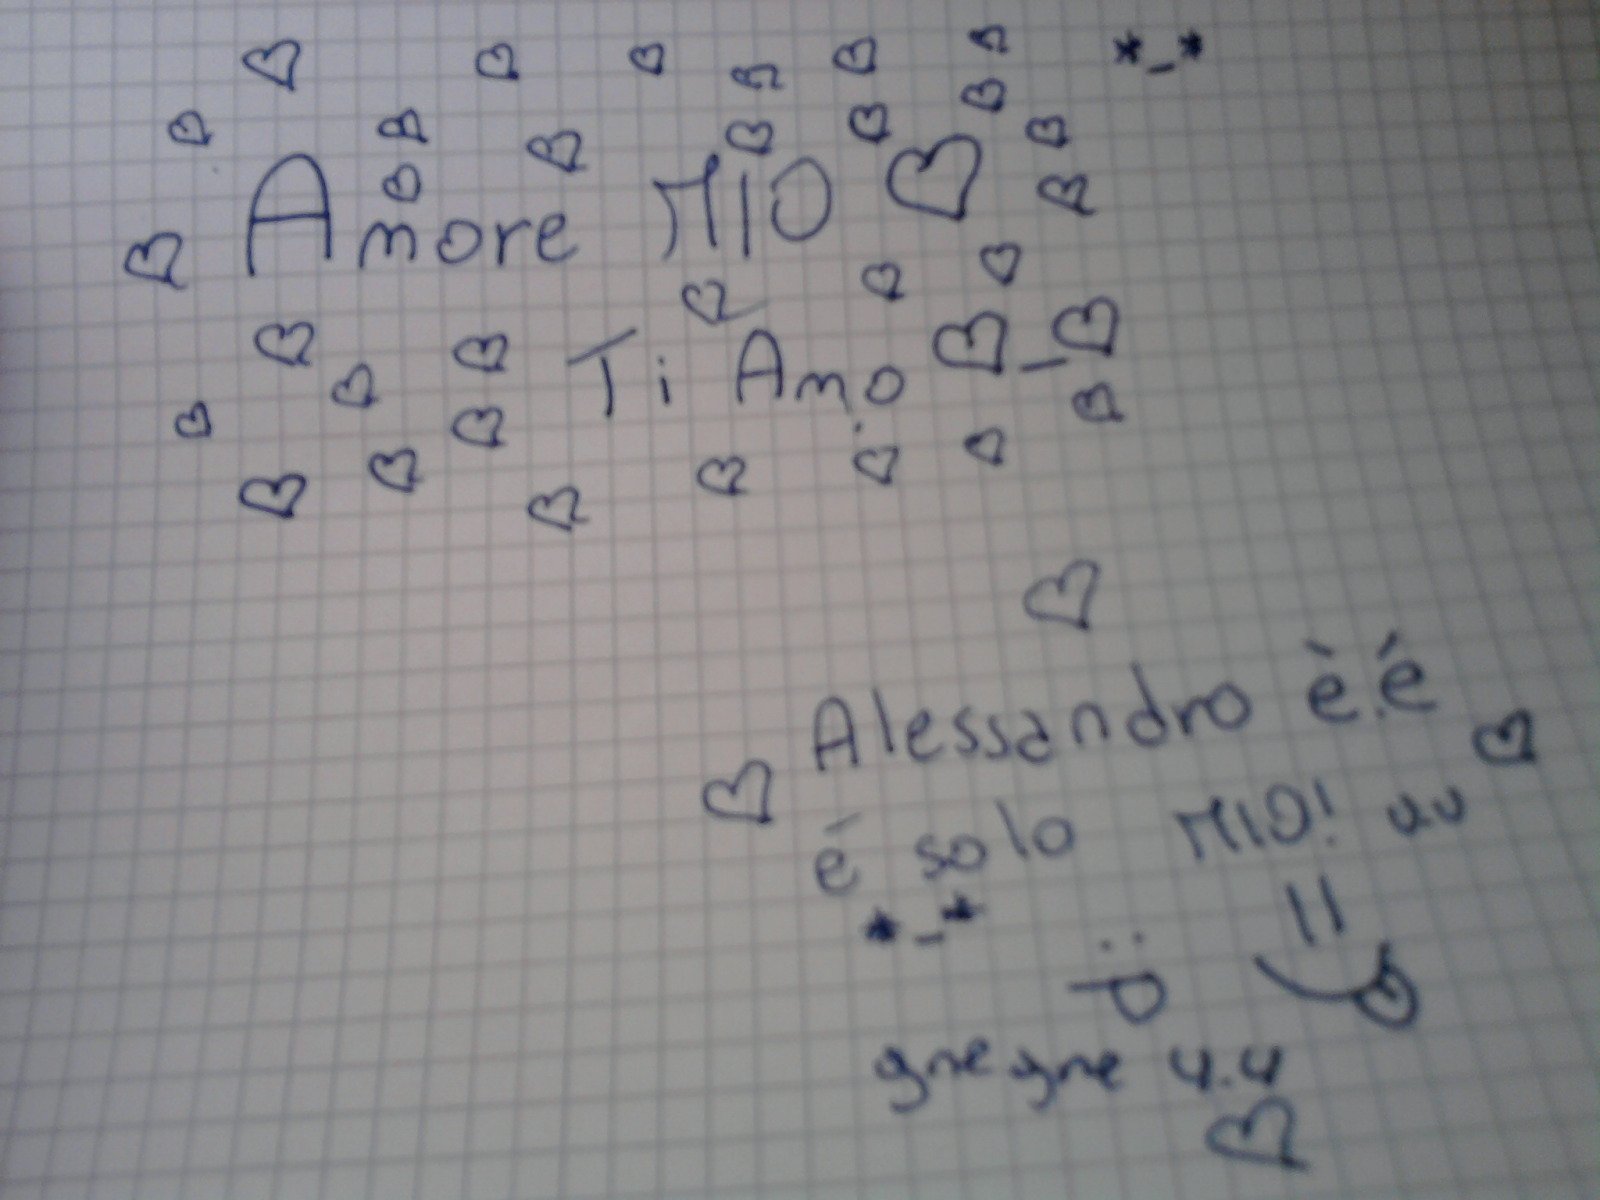 *_*
Amore MIO
Ti Amo
Alessandro è.é
é solo MIO! uu
*_*
gnegne u.u